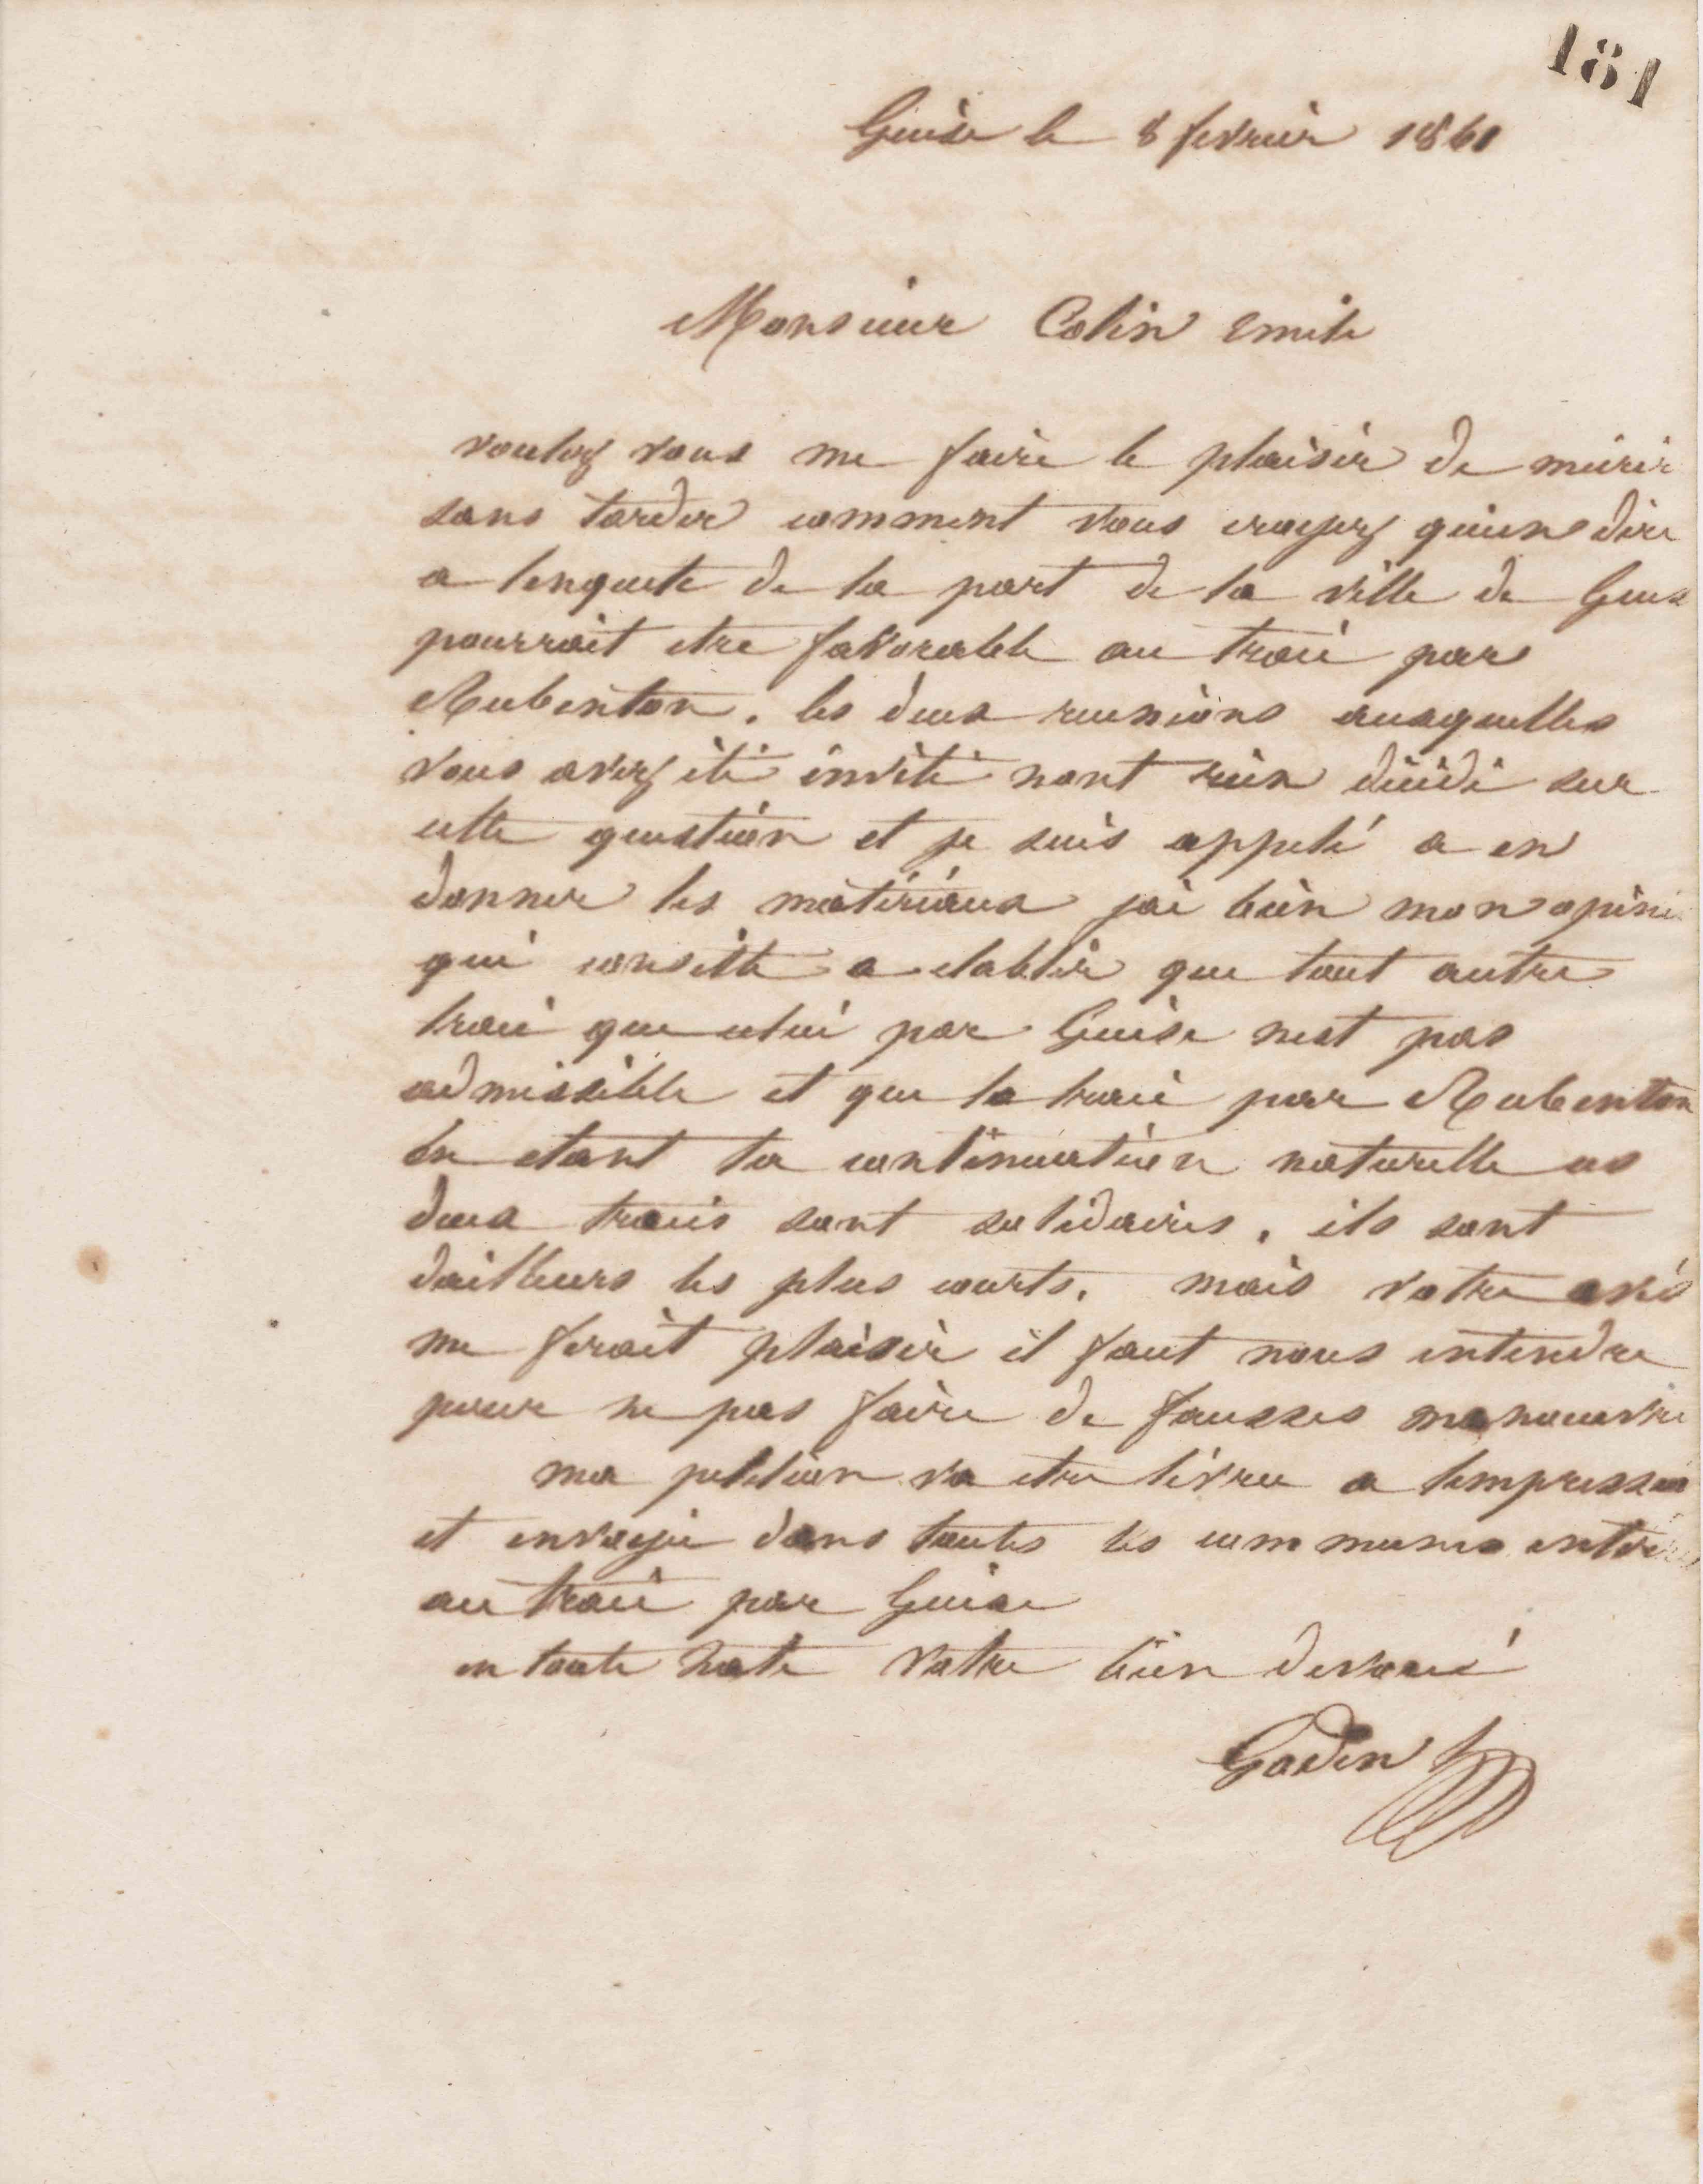 181
Guise le 8 fevrier 1861
Monsieur Colin Emile
voulez vous me faire le plaisir de mecrir
sans tarder comment vous croyez quun dire
a lenquete de la part de la ville de Guise
pourrait etre favorable au tracé par
Aubenton. les deux reunions auxquelles
vous avez été invité nont rien décidé sur
cette question et je suis appelé a en
donner les matériaux jai bien mon opini
qui consiste a etablir que tout autre
tracé que celui par Guise nest pas
admissible et que le tracé par Aubenton
en etant la continuation naturelle ces
deux tracés sont solidaires. ils sont
dailleurs les plus courts. mais votre avis
me ferait plaisir il faut nous entendre
pour ne pas faire de fausses manoeuvre
ma petition va etre livree a limpression
et envoyée dans toutes les communes
au tracé par Guise
en toute hate votre bien devoué
Godin